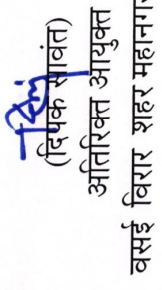 (दिपक सावंत)
अतिरिक्त आयुक्त
वसई विरार शहर महानगर